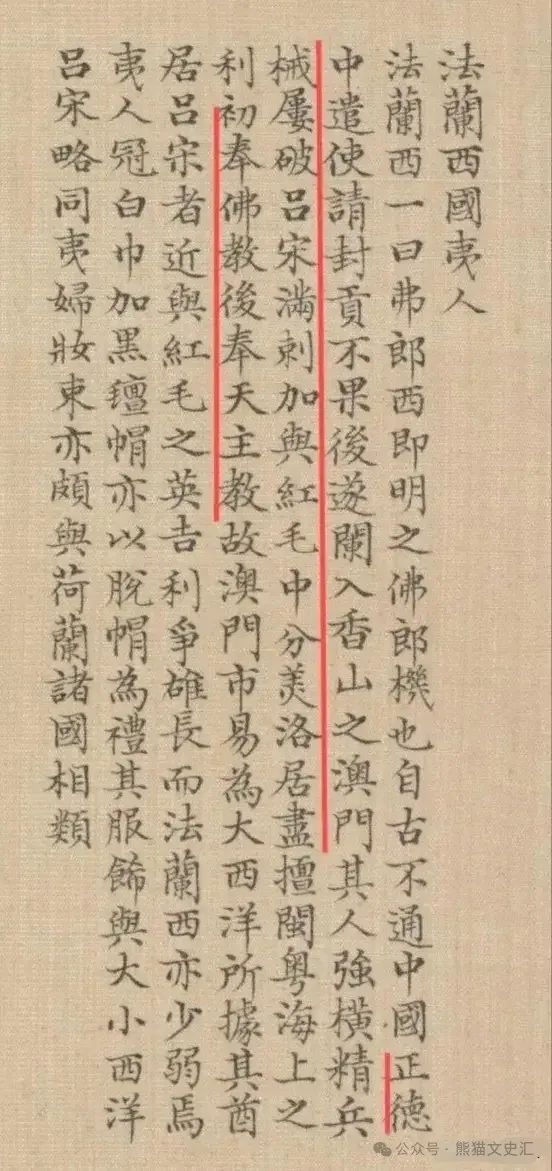 法蘭西國夷人
法蘭西一曰弗郎西即明之佛郎機也自古不通中國正德
中遣使請封貢不果後遂闌入香山之澳門其人強橫精兵
械屢破呂宋滿剌加與紅毛中分美洛居盡擅閩粵海上之
利初奉佛教後奉天主教故澳門市易為大西洋所據其酋
居呂宋者近與紅毛之英吉利爭雄長而法蘭西亦少弱焉
夷人冠白巾加黑氊帽亦以脫帽為禮其服飾與大小西洋
呂宋略同夷婦妝束亦頗與荷蘭諸國相類
公众号·熊猫文史汇